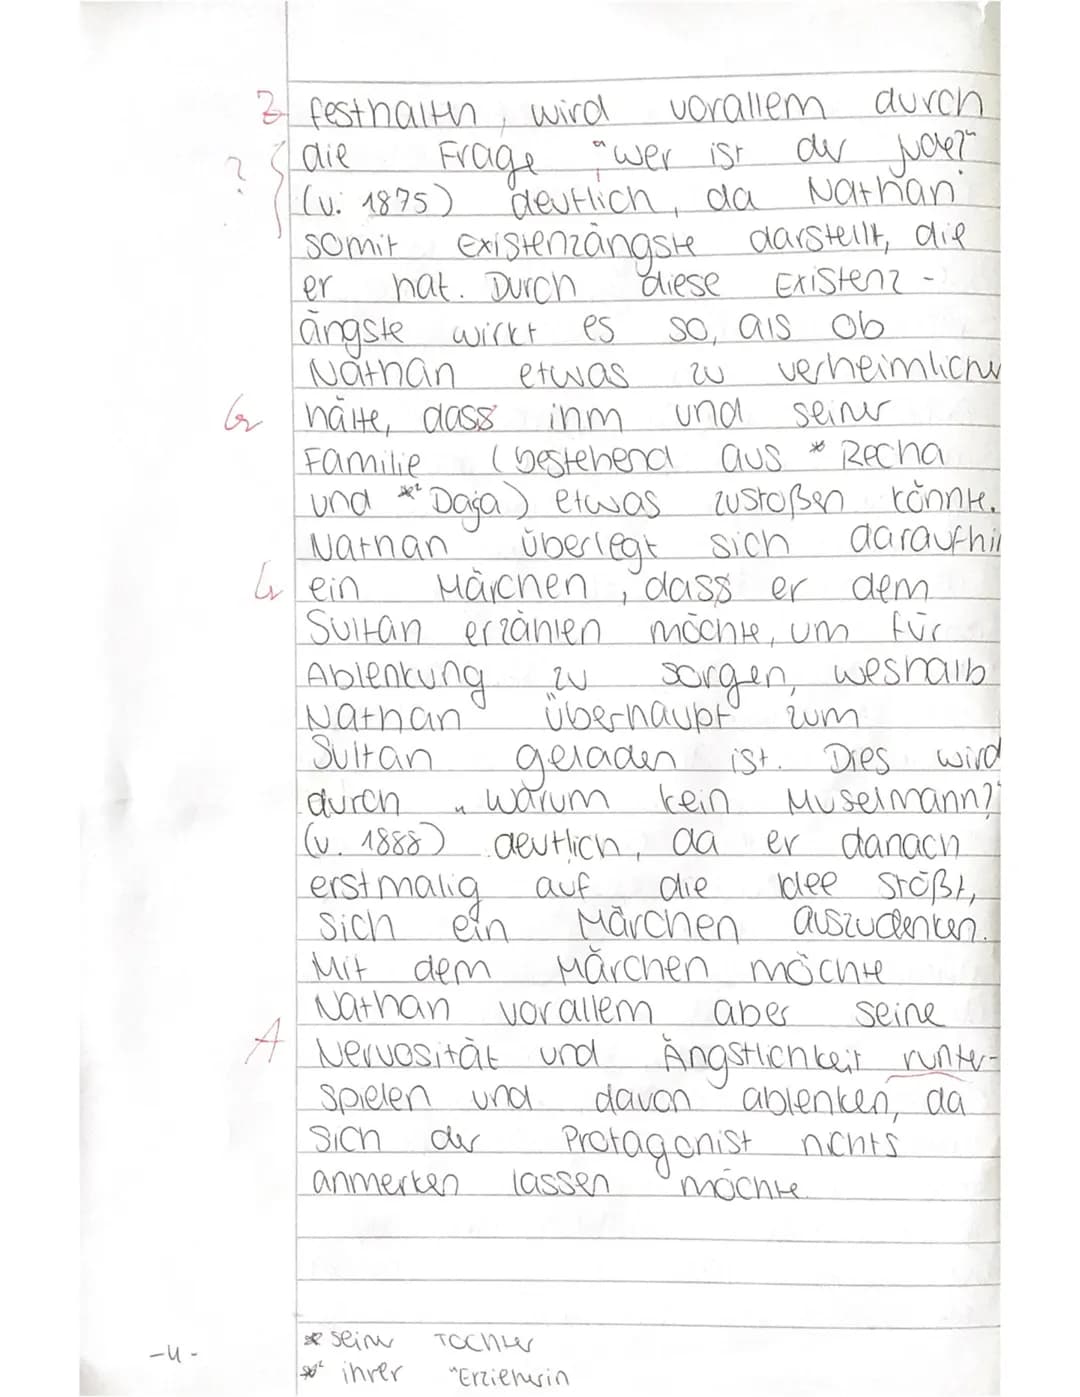 Z festhalten, wird vorallem durch
? die Frage "wer ist der Jude?"
(v. 1875) deutlich, da Nathan
somit Existenzängste darstellt, die
er hat. Durch diese Existenz-
ängste wirkt es so, als ob
Nathan etwas zu verheimlichen
Gr hätte, dass ihm und seiner
Familie (bestehend aus * Recha
und *² Daja) etwas zustoßen könnte.
Nathan überlegt sich daraufhin
Gr ein Märchen, dass er dem
Sultan erzählen möchte, um für
Ablenkung zu sorgen, weshalb
Nathan überhaupt zum
Sultan geladen ist. Dies wird
durch „warum kein Muselmann?"
(v. 1888) deutlich, da er danach
erstmalig auf die Idee stößt,
sich ein Märchen auszudenken.
Mit dem Märchen möchte
Nathan vorallem aber seine
A Nervosität und Ängstlichkeit runter-
spielen und davon ablenken, da
sich der Protagonist nichts
anmerken lassen möchte.
* seiner Tochter
-4-
*² ihrer "Erzieherin